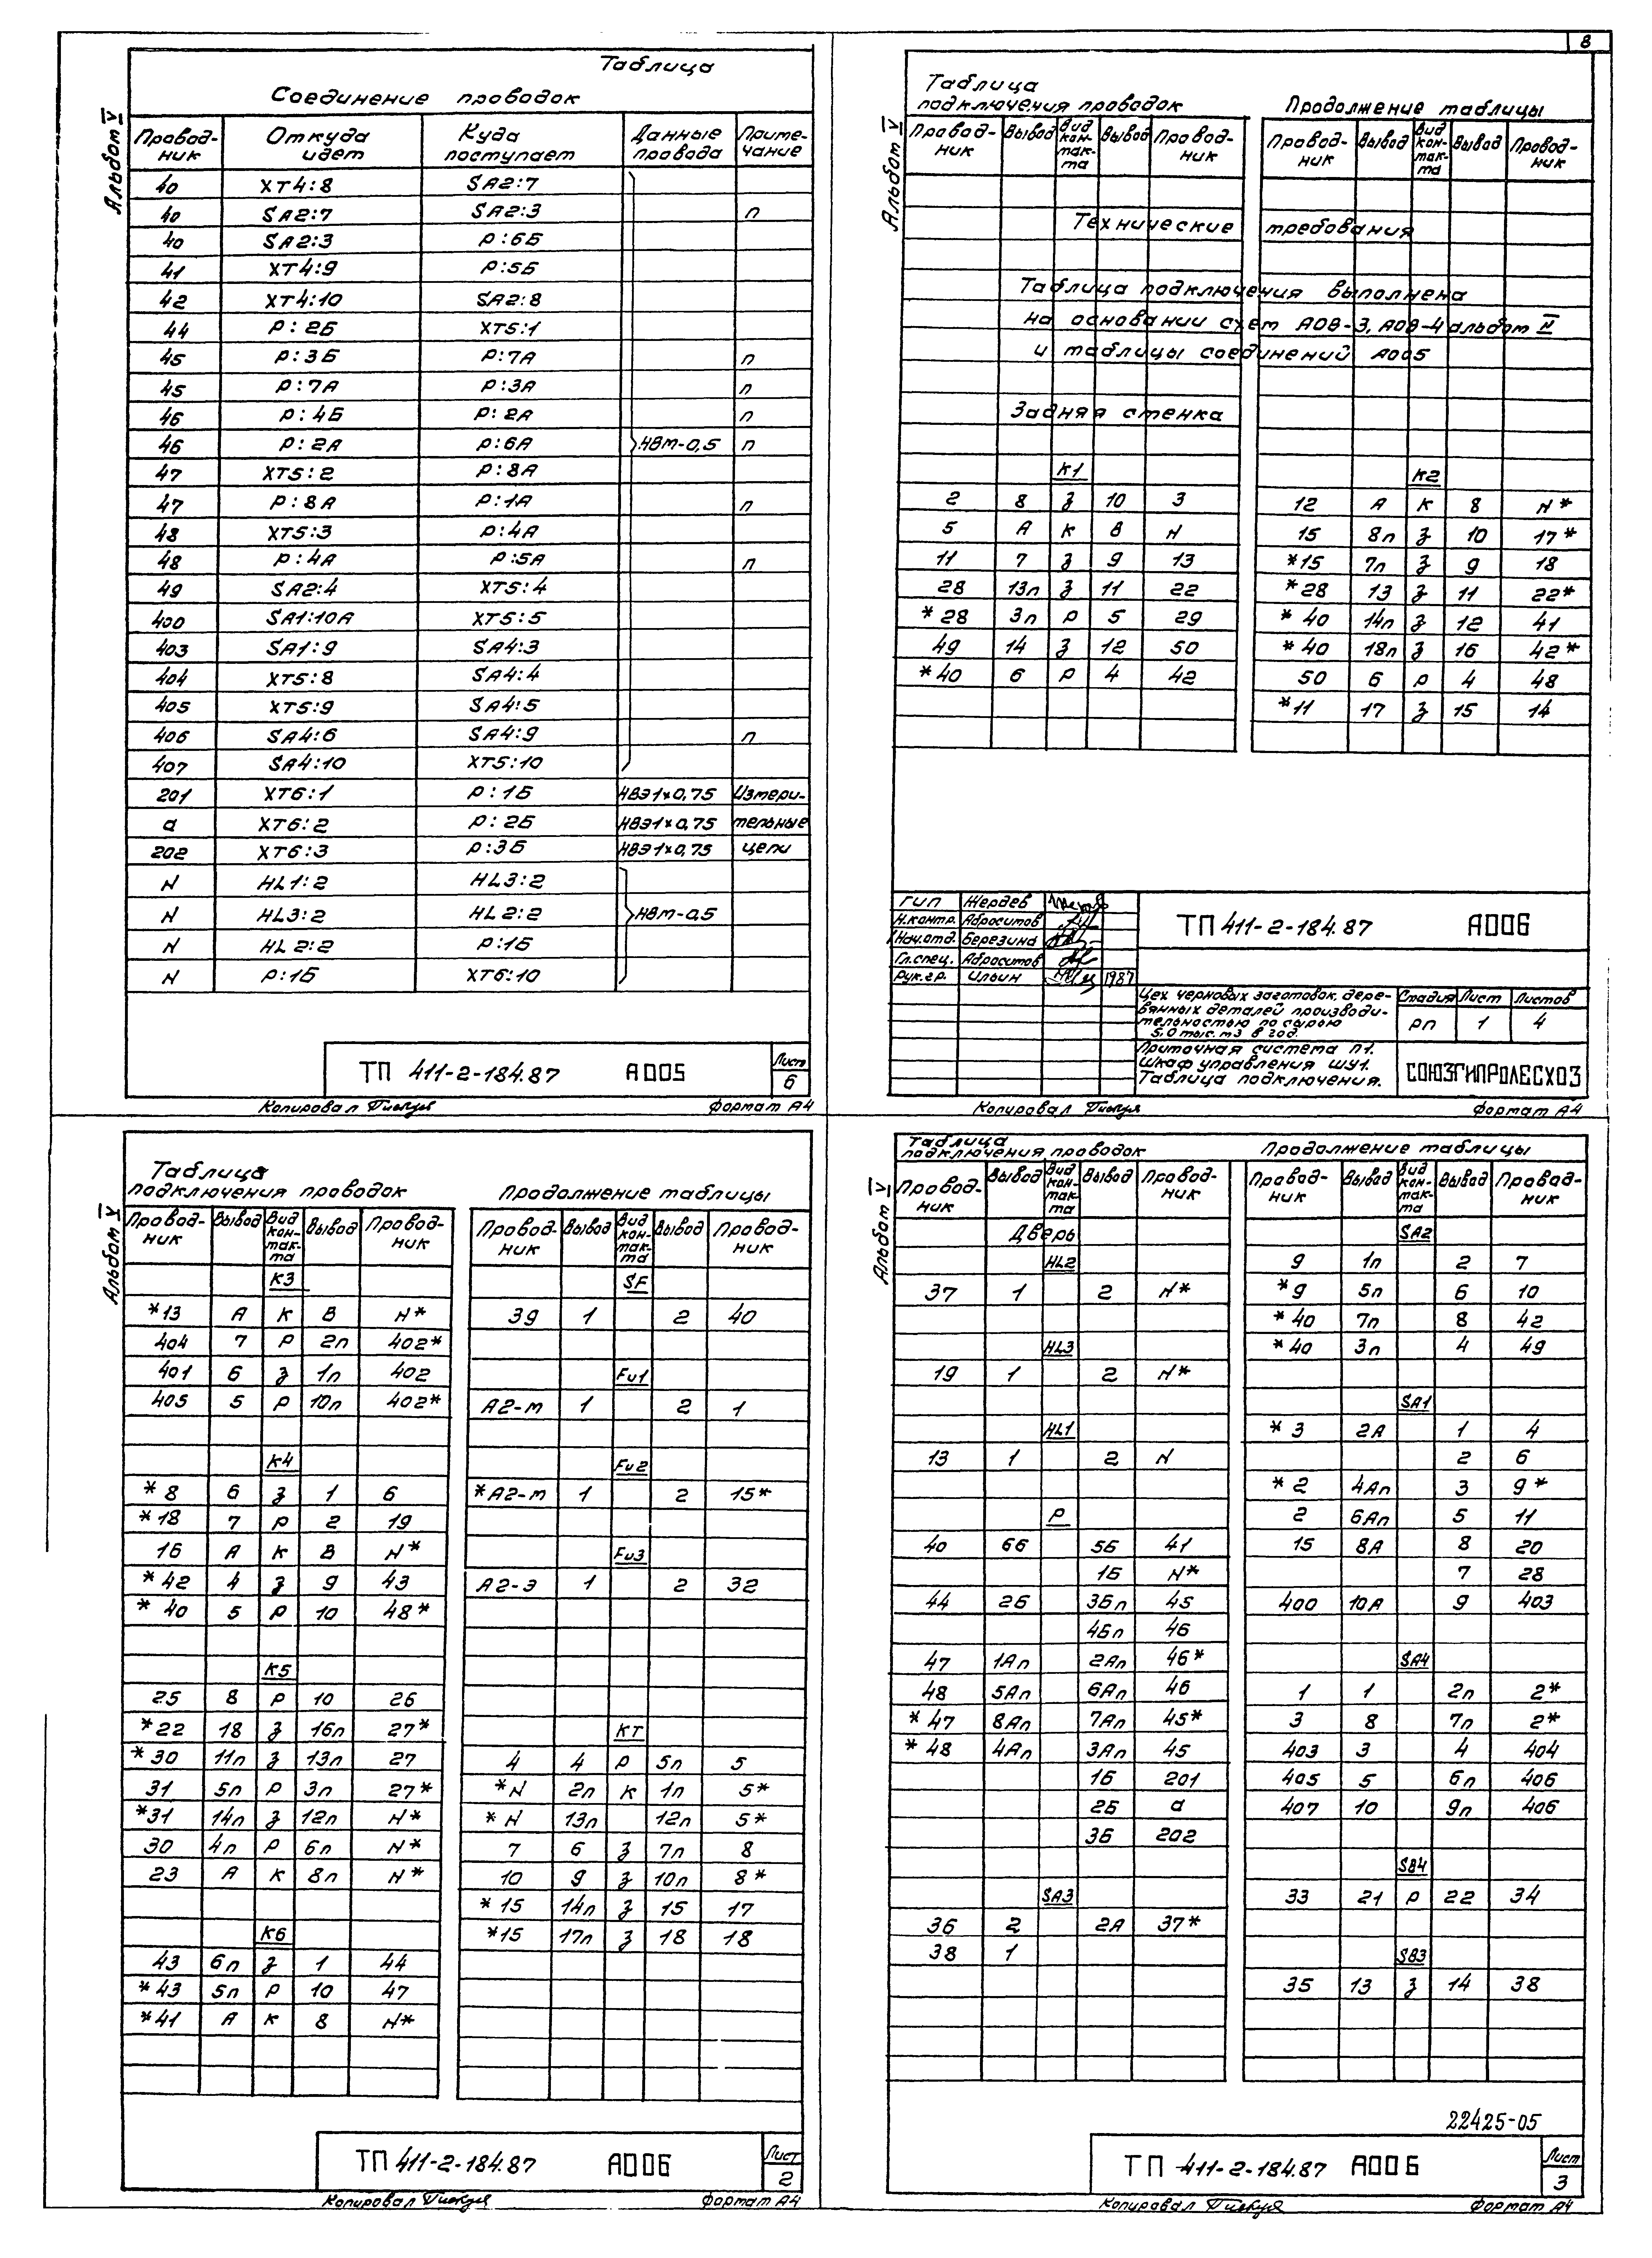 8
Таблица
Соединение проводок
Альбом V
Провод-ник Откуда идет Куда поступает Данные провода Приме-чание
40 XT4:8 SA2:7
40 SA2:7 SA2:3 п
40 SA2:3 Р:6Б
41 XT4:9 Р:5Б
42 XT4:10 SA2:8
44 Р:2Б XT5:1
45 Р:3Б Р:7А п
45 Р:7А Р:3А п
46 Р:4Б Р:2А п
46 Р:2А Р:6А НВМ-0,5 п
47 XT5:2 Р:8А
47 Р:8А Р:1А п
48 XT5:3 Р:4А
48 Р:4А Р:5А п
49 SA2:4 XT5:4
400 SA1:10А XT5:5
403 SA1:9 SA4:3
404 XT5:8 SA4:4
405 XT5:9 SA4:5
406 SA4:6 SA4:9 п
407 SA4:10 XT5:10
201 XT6:1 Р:1Б НВЭ1×0,75 Измери-
а XT6:2 Р:2Б НВЭ1×0,75 тельные
202 XT6:3 Р:3Б НВЭ1×0,75 цепи
N HL1:2 HL3:2
N HL3:2 HL2:2 НВМ-0,5
N HL2:2 Р:1Б
N Р:1Б XT6:10
ТП 411-2-184.87 А005 Лист 6
Копировал Формат А4
Таблица
подключения проводок Продолжение таблицы
Альбом V
Провод-ник Вывод Вид кон-так-та Вывод Провод-ник Провод-ник Вывод Вид кон-так-та Вывод Провод-ник
Технические требования
Таблица подключения выполнена
на основании схем А08-3, А08-4 альбом II
и таблицы соединений А005
Задняя стенка
К1 К2
2 8 з 10 3 12 А К 8 N*
5 А К В N 15 8п з 10 17*
11 7 з 9 13 *15 7п з 9 18
28 13п з 11 22 *28 13 з 11 22*
*28 3п Р 5 29 *40 14п з 12 41
49 14 з 12 50 *40 18п з 16 42*
*40 6 Р 4 42 50 6 Р 4 48
*11 17 з 15 14
ГИП Жердев
Н.контр. Абросимов
Нач.отд. Березина
Гл.спец. Абросимов
Рук.гр. Ильин 1987
ТП 411-2-184.87 А006
Цех черновых заготовок, дере-
вянных деталей производи-
тельностью по сырью
5,0 тыс. м3 в год.
Стадия Лист Листов
РП 1 4
Приточная система П1.
Шкаф управления ШУ1.
Таблица подключения.
СОЮЗГИПРОЛЕСХОЗ
Копировал Формат А4
Таблица
подключения проводок Продолжение таблицы
Альбом V
Провод-ник Вывод Вид кон-так-та Вывод Провод-ник Провод-ник Вывод Вид кон-так-та Вывод Провод-ник
К3 SF
*13 А К В N* 39 1 2 40
404 7 Р 2п 402*
401 6 з 1п 402 Fu1
405 5 Р 10п 402* А2-м 1 2 1
К4 Fu2
*8 6 з 1 6 *А2-м 1 2 15*
*18 7 Р 2 19
16 А К В N* Fu3
*42 4 з 9 43 А2-э 1 2 32
*40 5 Р 10 48*
К5
25 8 Р 10 26
*22 18 з 16п 27* КТ
*30 11п з 13п 27 4 4 Р 5п 5
31 5п Р 3п 27* *N 2п К 1п 5*
*31 14п з 12п N* *N 13п 12п 5*
30 4п Р 6п N* 7 6 з 7п 8
23 А К 8п N* 10 9 з 10п 8*
*15 14п з 15 17
К6 *15 17п з 18 18
43 6п з 1 44
*43 5п Р 10 47
*41 А К 8 N*
ТП 411-2-184.87 А006 Лист 2
Копировал Формат А4
Таблица
подключения проводок Продолжение таблицы
Альбом V
Провод-ник Вывод Вид кон-так-та Вывод Провод-ник Провод-ник Вывод Вид кон-так-та Вывод Провод-ник
Дверь SA2
HL2 9 1п 2 7
37 1 2 N* *9 5п 6 10
*40 7п 8 42
HL3 *40 3п 4 49
19 1 2 N*
SA1
HL1 *3 2А 1 4
13 1 2 N 2 6
*2 4Ап 3 9*
Р 2 6Ап 5 11
40 6Б 5Б 41 15 8А 8 20
1Б N* 7 28
44 2Б 3Бп 45 400 10А 9 403
4Бп 46
47 1Ап 2Ап 46* SA4
48 5Ап 6Ап 46 1 1 2п 2*
*47 8Ап 7Ап 45* 3 8 7п 2*
*48 4Ап 3Ап 45 403 3 4 404
1Б 201 405 5 6п 406
2Б а 407 10 9п 406
3Б 202
SB4
SA3 33 21 Р 22 34
36 2 2А 37*
38 1 SB3
35 13 з 14 38
22425-05
ТП 411-2-184.87 А006 Лист 3
Копировал Формат А4